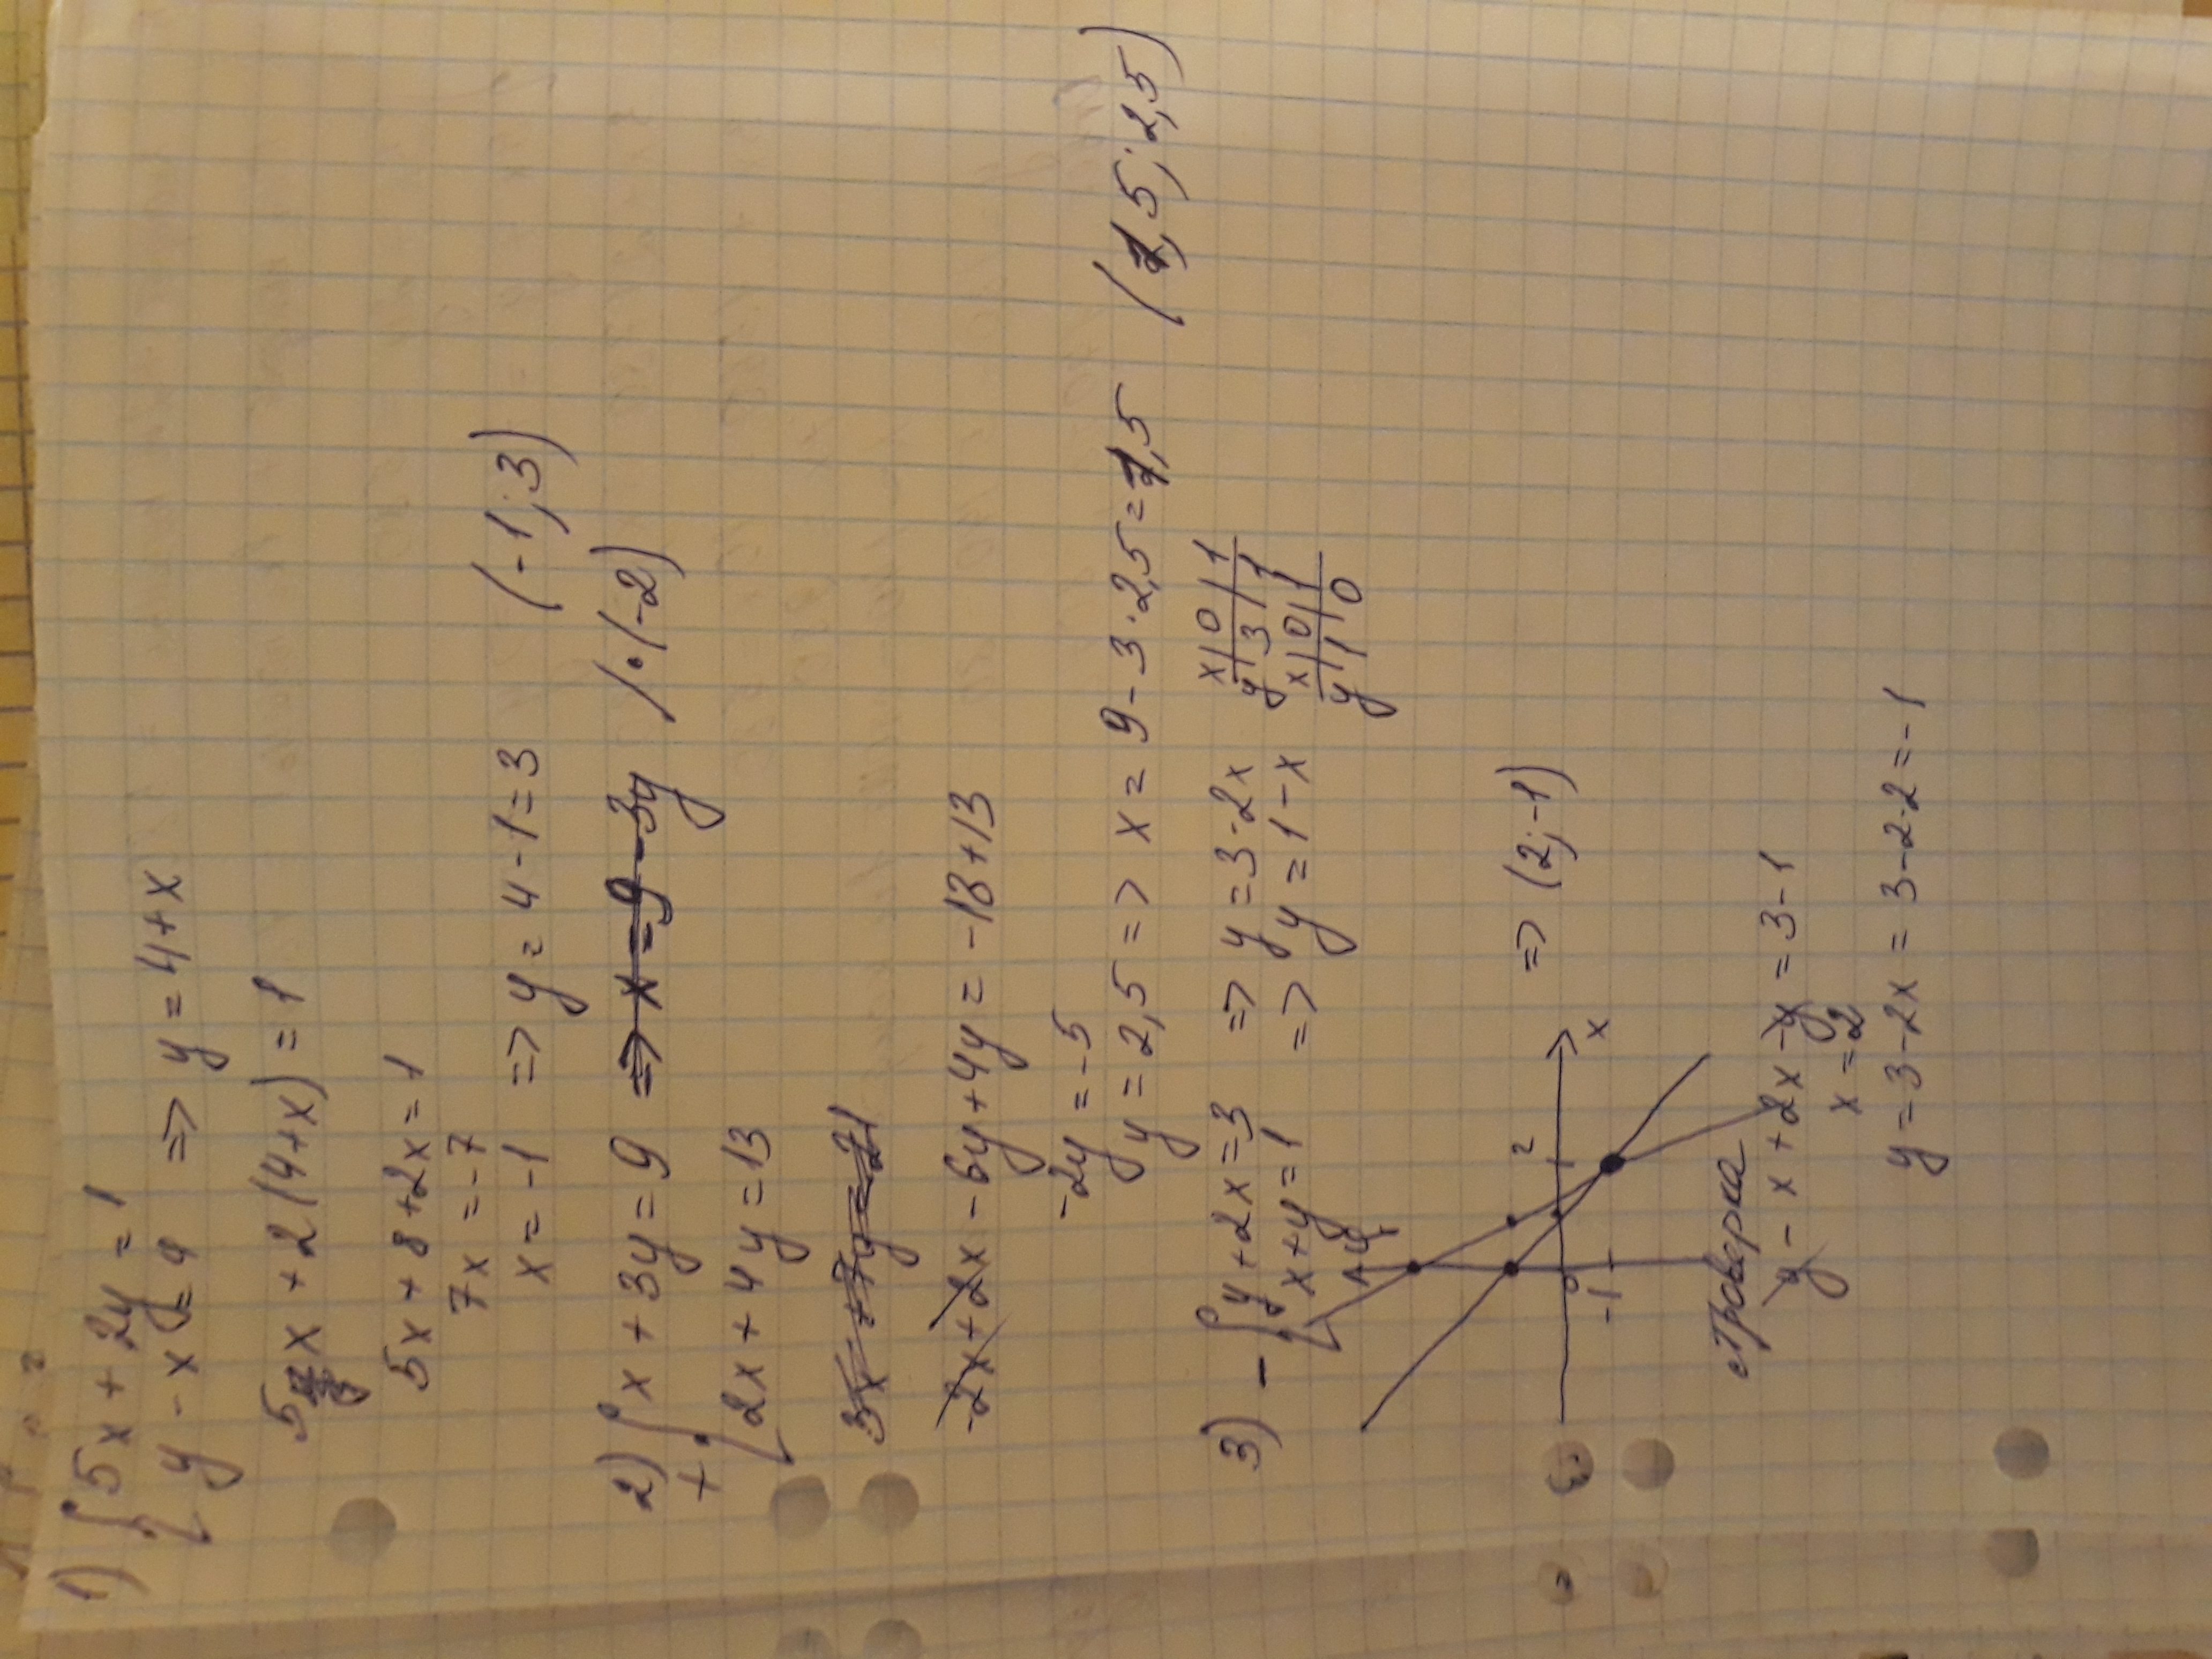 1) { 5x + 2y = 1
y - x = 4 => y = 4+x
5x + 2(4+x) = 1
5x + 8 + 2x = 1
7x = -7
x = -1 => y = 4-1=3 (-1; 3)
2) + { x + 3y = 9 => x = 9 - 3y / · (-2)
2x + 4y = 13
3x + 7y = 21
-2x + 2x - 6y + 4y = -18+13
-2y = -5
y = 2,5 => x = 9 - 3·2,5 = 1,5 (1,5; 2,5)
3) - { y + 2x = 3 => y = 3-2x
x|0|1
y|3|1
x+y=1 => y = 1-x
x|0|1
y|1|0
y
2
0
x
-1
=> (2; -1)
Проверка
y - x + 2x - y = 3-1
x = 2
y = 3-2x = 3-2·2=-1